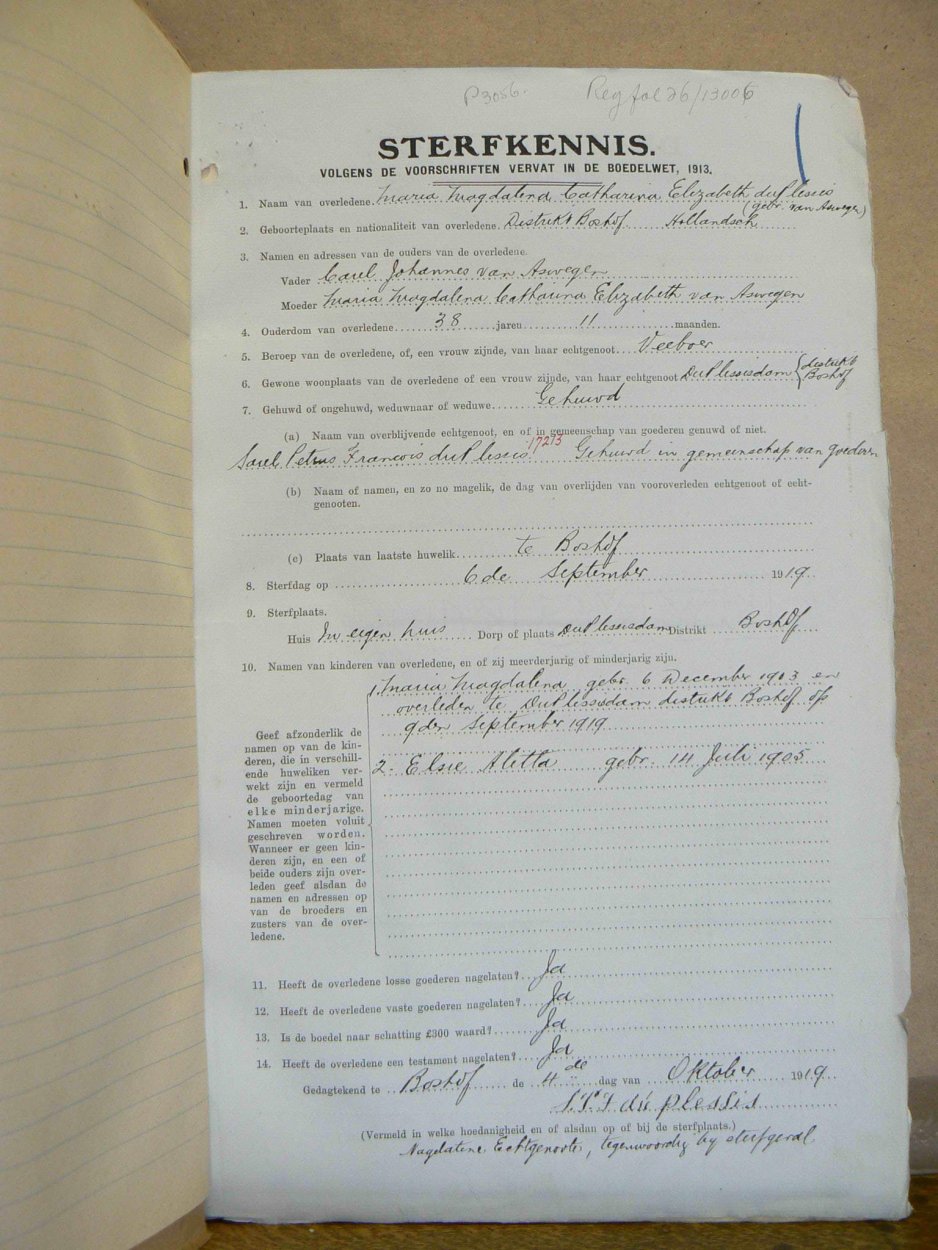 P3056. Reg fol 26/13006
STERFKENNIS.
VOLGENS DE VOORSCHRIFTEN VERVAT IN DE BOEDELWET, 1913.
1. Naam van overledene. Maria Magdalena Catharina Elizabeth du Plessis
(gebr. van Aswegen)
2. Geboorteplaats en nationaliteit van overledene. Distrikt Boshof Hollandsch
3. Namen en adressen van de ouders van de overledene.
Vader Carel Johannes van Aswegen
Moeder Maria Magdalena Catharina Elizabeth van Aswegen
4. Ouderdom van overledene 38 jaren 11 maanden.
5. Beroep van de overledene, of, een vrouw zijnde, van haar echtgenoot Veeboer
6. Gewone woonplaats van de overledene of een vrouw zijnde, van haar echtgenoot DuPlessisdam { distrikt
Boshof
7. Gehuwd of ongehuwd, weduwnaar of weduwe Gehuwd
(a) Naam van overblijvende echtgenoot, en of in gemeenschap van goederen genuwd of niet.
Sarel Petrus Francois du Plessis 17213 Gehuwd in gemeinschap van goederen
(b) Naam of namen, en zo no magelik, de dag van overlijden van vooroverleden echtgenoot of echt-
genooten.
(c) Plaats van laatste huwelik te Boshof
8. Sterfdag op 6de September 1919.
9. Sterfplaats.
Huis In eigen huis Dorp of plaats DuPlessisdam Distrikt Boshof
10. Namen van kinderen van overledene, en of zij meerderjarig of minderjarig zijn.
1. Maria Magdalena gebr. 6 December 1903 en
overleden te DuPlessisdam distrikt Boshof op
9den September 1919
2. Elsie Aletta gebr. 14 Juli 1905
Geef afzonderlik de
namen op van de kin-
deren, die in verschill-
ende huweliken ver-
wekt zijn en vermeld
de geboortedag van
elke minderjarige.
Namen moeten voluit
geschreven worden.
Wanneer er geen kin-
deren zijn, en een of
beide ouders zijn over-
leden geef alsdan de
namen en adressen op
van de broeders en
zusters van de over-
ledene.
11. Heeft de overledene losse goederen nagelaten? Ja
12. Heeft de overledene vaste goederen nagelaten? Ja
13. Is de boedel naar schatting £300 waard? Ja
14. Heeft de overledene een testament nagelaten? Ja
Gedagtekend te Boshof de 4de dag van Oktober 1919
S.P.F du Plessis
(Vermeld in welke hoedanigheid en of alsdan op of bij de sterfplaats.)
Nagelatene Echtgenoote, tegenwoordig by sterfgeval